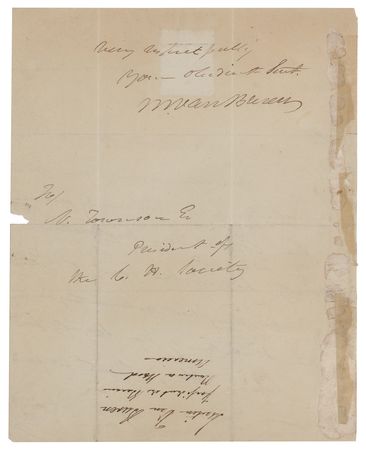 Very respectfully
Your obedient Servt.
M Van Buren
To/
N. Townson Er
President of
the C. H. Society
Martin Van Buren
President
America